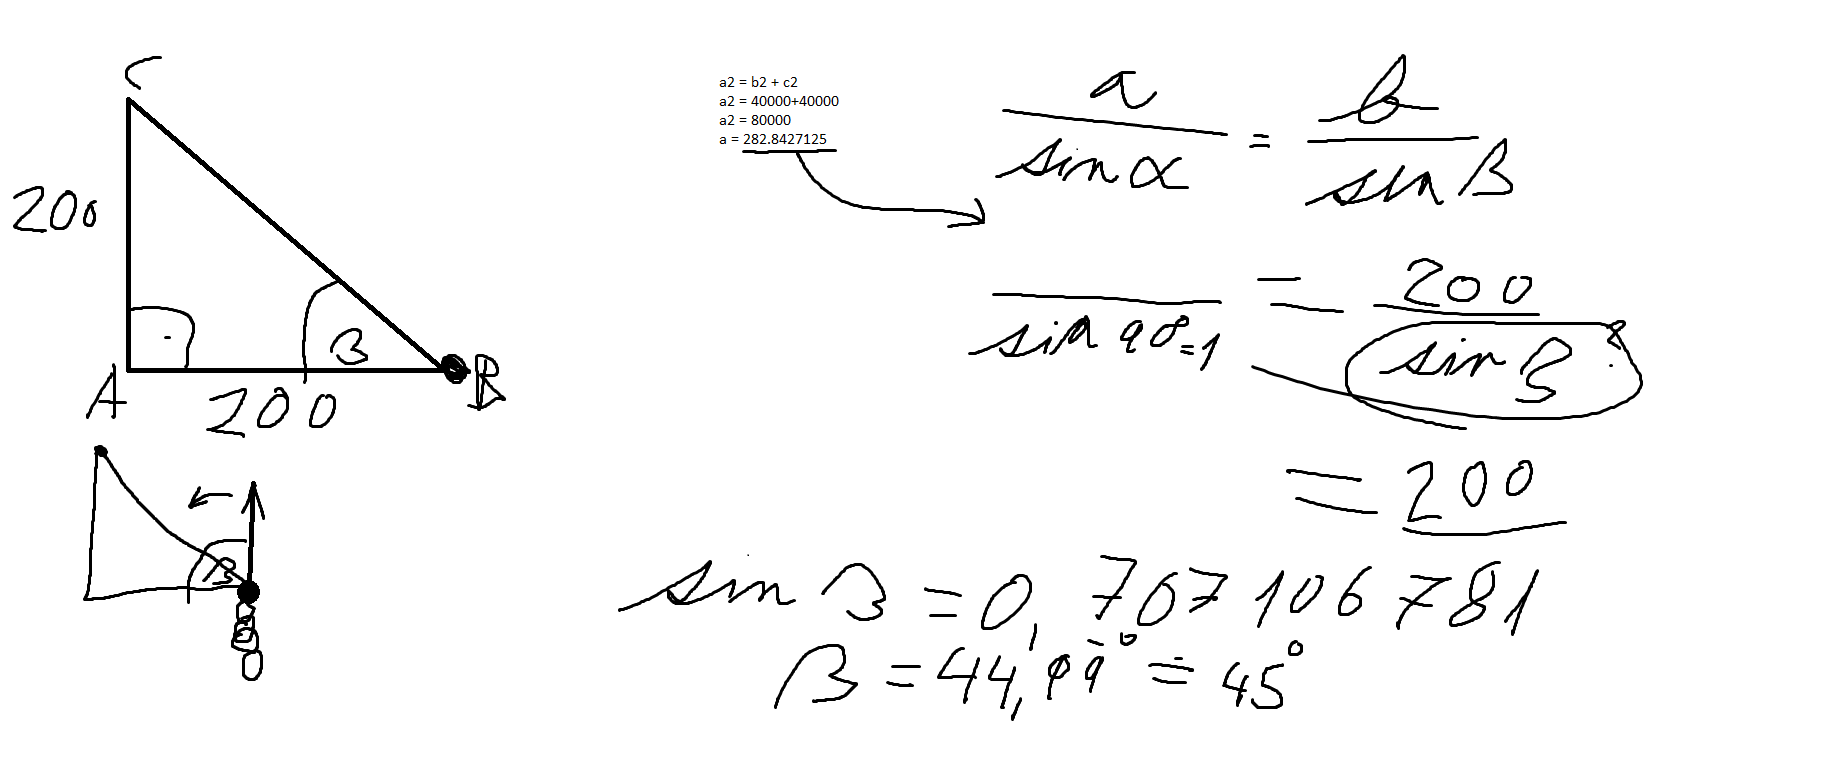 C
200
A
200
B
β
β
a2 = b2 + c2
a2 = 40000+40000
a2 = 80000
a = 282.8427125
a / sin α = b / sin β
/ sin 90° = 1 = 200 / sin β
= 200
sin β = 0,707106781
β = 44,99° ≐ 45°